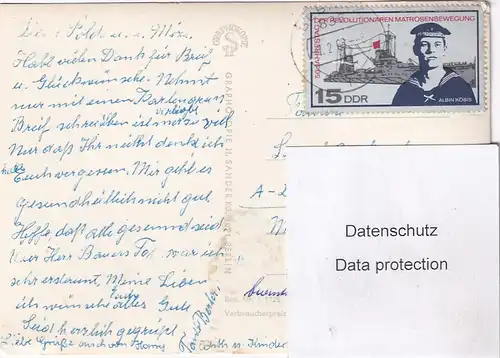 Habt vielen Dank für Brief
u. Glückwünsche. Nehmt
nur mit einem Kartengruss
Brief schreiben ist mir zu viel
Nur daß Ihr nicht denkt ich
habe Euch vergessen. Mir geht es
Gesundheitlich nicht gut.
Hoffe, daß alle gesund seid.
Über Herr Bauers Tot war ich
sehr erstaunt. Meine Lieben
ich wünsche Euch alles Gute
Seid herzlich gegrüßt
Liebe Grüße auch von
Tante
u. Kinder
GRAPHOKOPIE
GRAPHOKOPIE H. SANDER KG BERLIN
Verbraucherpreis
DER REVOLUTIONÄREN MATROSENBEWEGUNG
50. JAHRESTAG
15 DDR
ALBIN KÖBIS
A-2
Datenschutz
Data protection